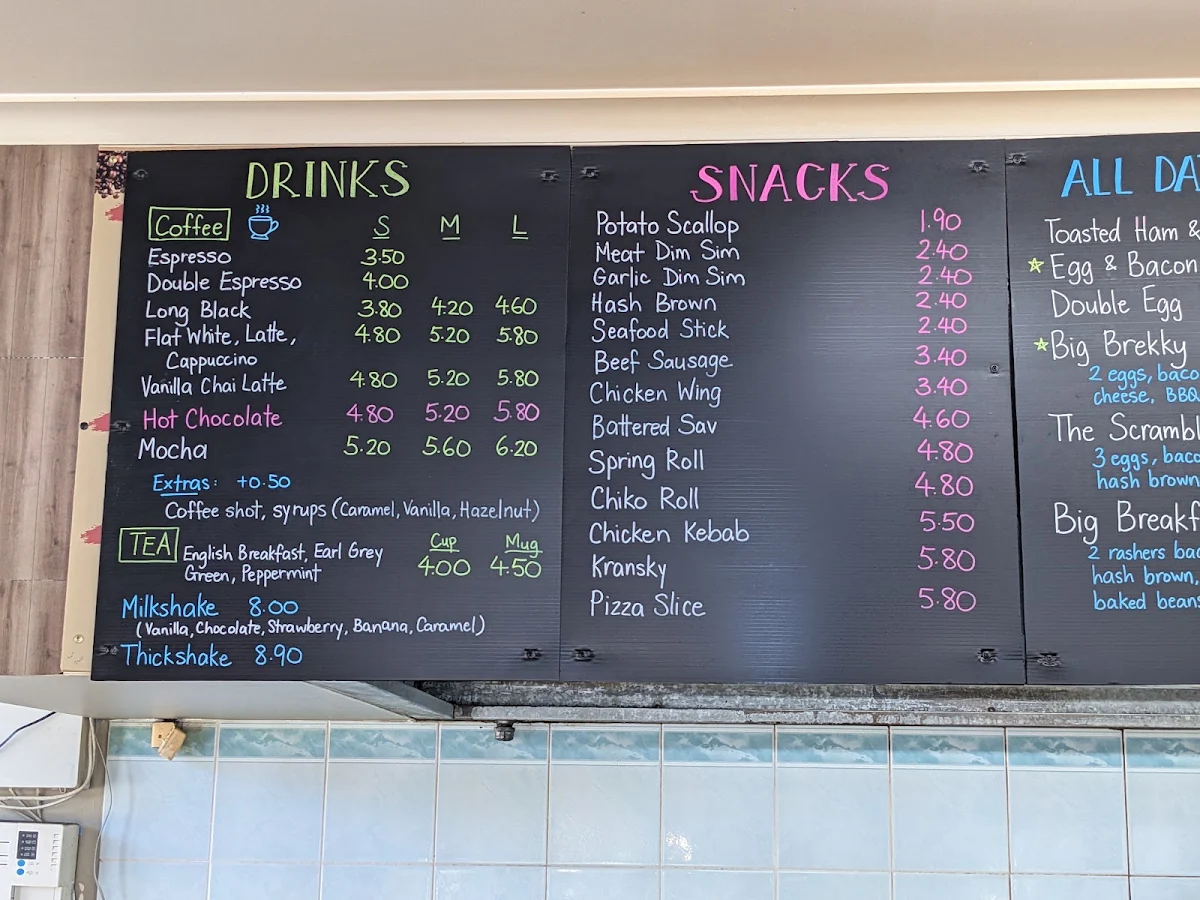 DRINKS
Coffee S M L
Espresso 3.50
Double Espresso 4.00
Long Black 3.80 4.20 4.60
Flat White, Latte, 4.80 5.20 5.80
Cappuccino
Vanilla Chai Latte 4.80 5.20 5.80
Hot Chocolate 4.80 5.20 5.80
Mocha 5.20 5.60 6.20
Extras: +0.50
Coffee shot, syrups (Caramel, Vanilla, Hazelnut)
TEA English Breakfast, Earl Grey Cup Mug
Green, Peppermint 4.00 4.50
Milkshake 8.00
(Vanilla, Chocolate, Strawberry, Banana, Caramel)
Thickshake 8.90
SNACKS
Potato Scallop 1.90
Meat Dim Sim 2.40
Garlic Dim Sim 2.40
Hash Brown 2.40
Seafood Stick 2.40
Beef Sausage 3.40
Chicken Wing 3.40
Battered Sav 4.60
Spring Roll 4.80
Chiko Roll 4.80
Chicken Kebab 5.50
Kransky 5.80
Pizza Slice 5.80
ALL DA
Toasted Ham &
Egg & Bacon
Double Egg
Big Brekky
2 eggs, baco
cheese, BBQ
The Scrambl
3 eggs, baco
hash brown
Big Breakf
2 rashers bac
hash brown,
baked beans